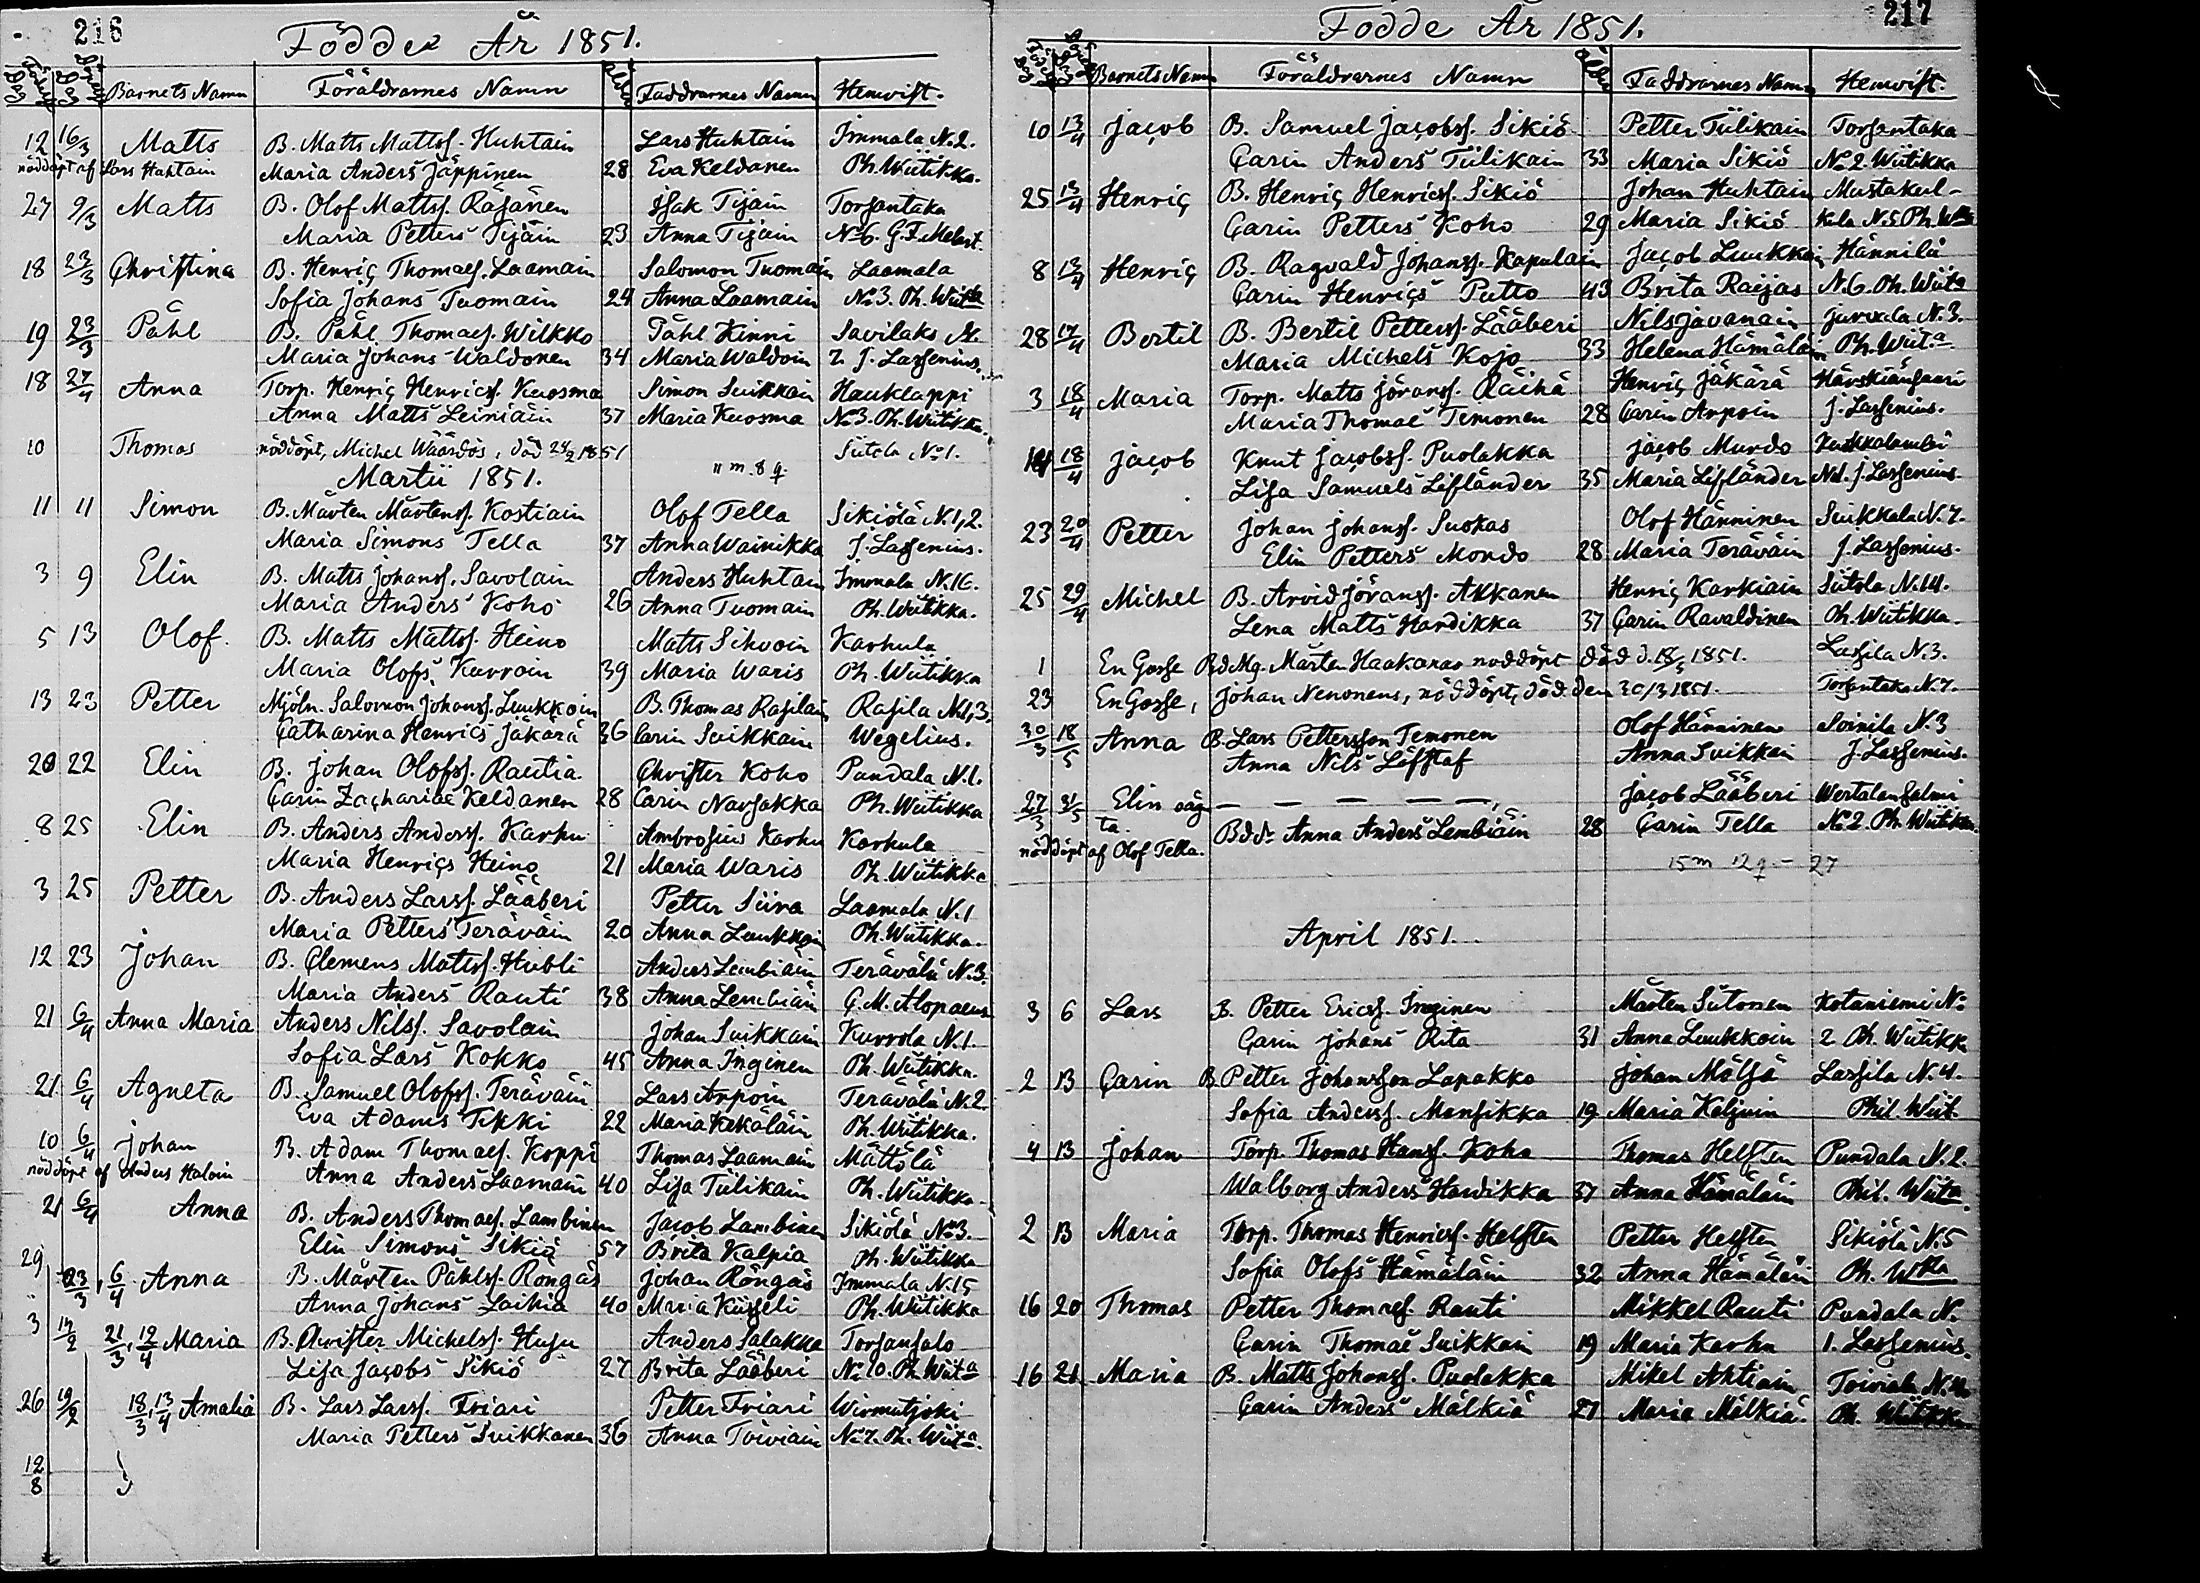 216
Födde År 1851.
Födelse Dag Döpelse Dag Barnets Namn Föräldrarnes Namn Ålder Faddrarnes Namn Hemvist.
12 16/3 Matts B. Matts Mattss. Huhtain Lars Huhtain Immala N. 2.
nöddöpt af Lars Huhtain Maria Anders Jäppinen 28 Eva Keldanen Ph. Wiitikka.
27 9/3 Matts B. Olof Mattss. Räsänen Isak Tijäin Torsantaka
Maria Petters Tijäin 23 Anna Tijäin No 6. G. F. Melart
18 23/3 Christina B. Henric Thomass. Laamain Salomon Tuomain Laamala
Sofia Johans Tuomain 24 Anna Laamain No 3. Ph. Wiitka
19 23/3 Påhl B. Påhl Thomass. Wilkko Påhl Kinni Savilaks N.
Maria Johans Waldonen 34 Maria Waldoin 2 J. Lassenius.
18 27/4 Anna Torp. Henric Henricss. Kuosma Simon Suikkain Hauklappi
Anna Matts Leiniäin 37 Maria Kuosma No 3. Ph. Wiitikka.
10 Thomas nöddöpt, Michel Wäärdös, död 24/2 1851 Siitola No 1.
Martii 1851. 11 m. 8 q.
11 11 Simon B. Mårten Mårtenss. Kostiain Olof Tella Sikiölä N. 1, 2.
Maria Simons Tella 37 Anna Wainikka J. Lassenius.
3 9 Elin B. Matts Johanss. Savolain Anders Huhtain Immala N. 16.
Maria Anders Koho 26 Anna Tuomain Ph. Wiitikka.
5 13 Olof. B. Matts Mattss. Heino Matts Sihvoin Karhula
Maria Olofs Kurvoin 39 Maria Waris Ph. Wiitikka
13 23 Petter Mjöln. Salomon Johanss. Luukkoin B. Thomas Rasilain Rasila N. 1, 3.
Catharina Henrics Jäkärä 36 Carin Suikkain Wegelius.
20 22 Elin B. Johan Olofss. Rautia Christer Koho Pundala N. 1.
Carin Zachariae Keldanen 28 Carin Narsakka Ph. Wiitikka
8 25 Elin B. Anders Anderss. Karhu Ambrosius Karhu Karhula
Maria Henrics Heino 21 Maria Waris Ph. Wiitikka
3 25 Petter B. Anders Larss. Lääberi Petter Siira Laamala N. 1
Maria Petters Teräväin 20 Anna Luukkoin Ph. Wiitikka.
12 23 Johan B. Clemens Mattss. Hubli Anders Lembiäin Terävälä N. 3.
Maria Anders Rauti 38 Anna Lembiäin C. M. Alopaeus
21 6/4 Anna Maria Anders Nilss. Savolain Johan Suikkain Kurvola N. 1.
Sofia Lars Kokko 45 Anna Inginen Ph. Wiitikka.
21 6/4 Agneta B. Samuel Olofss. Teräväin Lars Arpoin Terävälä N. 2
Eva Adams Tikki 22 Maria Kekäläin Ph. Wiitikka.
10 6/4 Johan B. Adam Thomass. Koppi Thomas Laamain Mättölä
nöddöpt af Anders Haloin Anna Anders Laamain 40 Lisa Tiilikain Ph. Wiitikka.
21 6/4 Anna B. Anders Thomass. Lambinen Jacob Lambinen Sikiölä No 3.
Elin Simons Sikiö 57 Brita Kalpia Ph. Wiitikka
29 23/3, 6/4 Anna B. Mårten Påhlss. Röngäs Johan Röngäs Immala N. 15
Anna Johans Laihia 40 Maria Kiisseli Ph. Wiitikka
3 14/2 21/3, 12/4 Maria B. Christer Michelss. Husu Anders Salakka Torsansalo
Lisa Jacobs Sikiö 27 Brita Lääberi No 10. Ph. Wiita
26 19/2 18/3, 13/4 Amalia B. Lars Larss. Friari Petter Friari Wirmutjoki
Maria Petters Suikkanen 36 Anna Toiviain No 7. Ph. Wiita.
12/8
217
Födde År 1851.
Födelse Dag Döpelse Dag Barnets Namn Föräldrarnes Namn Ålder Faddrarnes Namn Hemvist.
10 13/4 Jacob B. Samuel Jacobss. Sikiö Petter Tiilikain Torsantaka
Carin Anders Tiilikain 33 Maria Sikiö No 2 Wiitikka
25 13/4 Henric B. Henric Henricss. Sikiö Johan Huhtain Mustakul-
Carin Petters Koho 29 Maria Sikiö kula N. 5 Ph. Wtka
8 13/4 Henric B. Ragvald Johanss. Kapulain Jacob Luukkain Hännilä
Carin Henrics Putto 43 Brita Raijas N. 6. Ph. Wiita
28 17/4 Bertil B. Bertil Petterss. Lääberi Nils Javanain Jurvala N. 3.
Maria Michels Kojo 33 Helena Hämäläin Ph. Wiit.a
3 18/4 Maria Torp. Matts Jöranss. Räihä Henric Jäkärä Härskiänsaari
Maria Thomae Timonen 28 Carin Arpoin J. Lassenius.
14 18/4 Jacob Knut Jacobss. Puolakka Jacob Murdo Kuukkalambi
Lisa Samuels Lifländer 35 Maria Lifländer No 1. J. Lassenius.
23 20/4 Petter Johan Johanss. Suokas Olof Hänninen Suikkala N. 7.
Elin Petters Mondo 28 Maria Teräväin J. Lassenius.
25 29/4 Michel B. Arvid Jöranss. Akkanen Henric Karkiain Siitola N. 14.
Lena Matts Hardikka 37 Carin Ravaldinen Ph. Wiitikka.
1 En Gosse B.d. Mg. Mårten Haakanas nöddöpt död d. 18/3 1851. Lassila N. 3.
23 En Gosse, Johan Nenonens, nöddöpt, död den 30/3 1851. Torsantaka N. 7.
30/3 18/5 Anna B. Lars Pettersson Temonen Olof Hänninen Soinila N. 3
Anna Nils Löfstaf Anna Suikkai J. Lassenius.
27/3 31/5 Elin oäg- — — — — —, Jacob Lääberi Wertalansalmi
ta. B.dr. Anna Anders Lembiäin 28 Carin Tella No 2. Ph. Wiitikka.
nöddöpt af Olof Tella.
15 m 12 q – 27
April 1851.
3 6 Lars B. Petter Ericss. Inginen Mårten Siitonen Kotaniemi No
Carin Johans Rita 31 Anna Luukkoin 2 Ph. Wiitikka
2 13 Carin B. Petter Johansson Lapakko Johan Mälsä Lassila N. 4.
Sofia Anderss. Mansikka 19 Maria Keljuin Phil. Wiit.
4 13 Johan Torp. Thomas Hanss. Koho Thomas Helsten Pundala N. 2.
Walborg Anders Hardikka 37 Anna Hämäläin Phil. Wiita.
2 13 Maria Torp. Thomas Henricss. Helsten Petter Helsten Sikiölä N. 5
Sofia Olofs Hämäläin 32 Anna Hämäläin Ph. Wtka
16 20 Thomas Petter Thomass. Rauti Mikkel Rauti Pundala N.
Carin Thomae Suikkain 19 Maria Karhu 1. Lassenius.
16 21 Maria B. Matts Johanss. Puolakka Mikel Ahtiain Toiviala N.
Carin Anders Mälkiä 27 Maria Mälkiä. Ph. Wiitikka